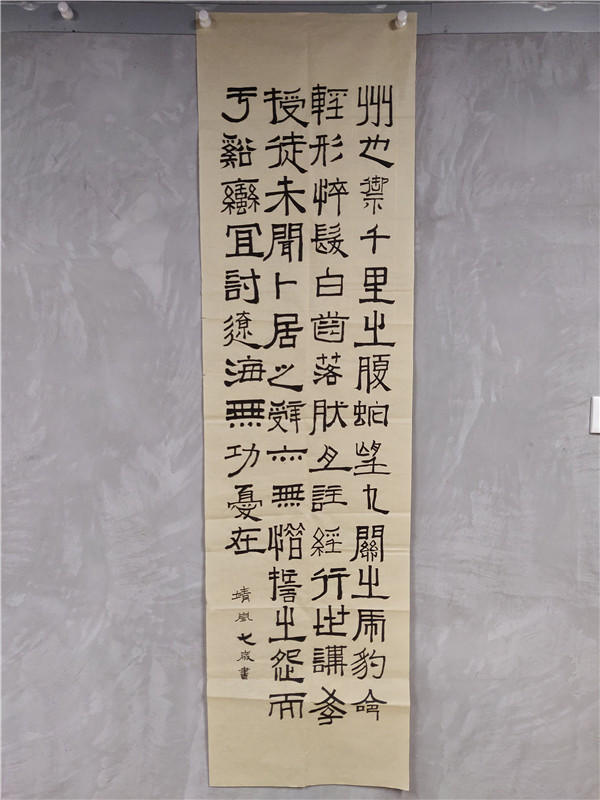 州也禦千里之腹蛇望九關之虎豹命
輕形悴髮白齒落肰且註經行世講斈
授徒未聞卜居之辭亦無惜誓之怨而
于谿蠻宜討遼海無功憂在
靖嵐七歲書